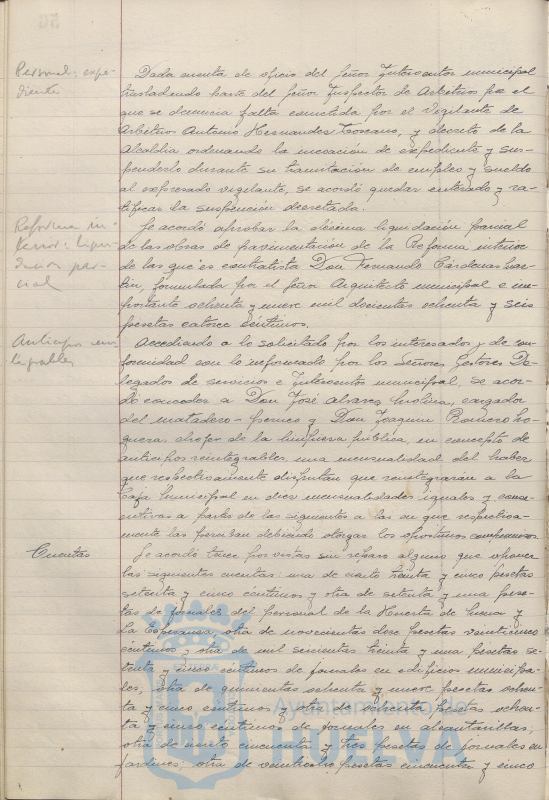 Personal: expe-
diente
Dada cuenta de oficio del Señor Interventor municipal
trasladando parte del Señor Inspector de Arbitrios por el
que se denuncia falta cometida por el Vigilante de
Arbitrios Antonio Hernandez Toscano, y decreto de la
Alcaldia ordenando la incoación de expediente y sus-
penderlo durante su tramitación de empleo y sueldo
al expresado vigilante, se acordó quedar enterado y ra-
tificar la suspención decretada.
Reforma in-
terior: liqui-
dación par-
cial
Se acordó aprobar la décima liquidación parcial
de las obras de pavimentación de la Reforma interior
de las que es contratista Don Fernando Cárdenas
formulada por el Señor Arquitecto municipal e im-
portante ochenta y nueve mil doscientas ochenta y seis
pesetas catorce céntimos.
Anticipos rein-
tegrables
Accediendo a lo solicitado por los interesados y de con-
formidad con lo informado por los Señores Gestores De-
legados de servicios e Interventor municipal, se acor-
dó conceder a Don José Alvarez Molina, cargador
del matadero y Don Joaquin Romero No-
guera, chofer de la limpieza pública, en concepto de
anticipos reintegrables una mensualidad del haber
que respectivamente disfrutan que reintegraran a la
Caja Municipal en diez mensualidades iguales y conse-
cutivas a partir de las siguientes a las en que respectiva-
mente las perciban debiendo otorgar los oportunos compromisos.
Cuentas
Se acordó tener por vistas sin reparo alguno que oponer
las siguientes cuentas: una de ciento treinta y cinco pesetas
setenta y cinco céntimos y otra de setenta y una pese-
tas de jornales del personal de la Huerta de Mena y
La Esperanza, otra de novecientas doce pesetas veinticinco
céntimos y otra de mil seiscientas treinta y una pesetas se-
tenta y cinco céntimos de jornales en edificios municipa-
les; otra de quinientas ochenta y nueve pesetas ochen-
ta y cinco céntimos y otra de ochenta pesetas ochen-
ta y cinco céntimos de jornales en alcantarillas;
otra de ciento cincuenta y tres pesetas de jornales en
jardines: otra de veinticuatro pesetas cincuenta y cinco
Ayuntamiento de
HUELVA